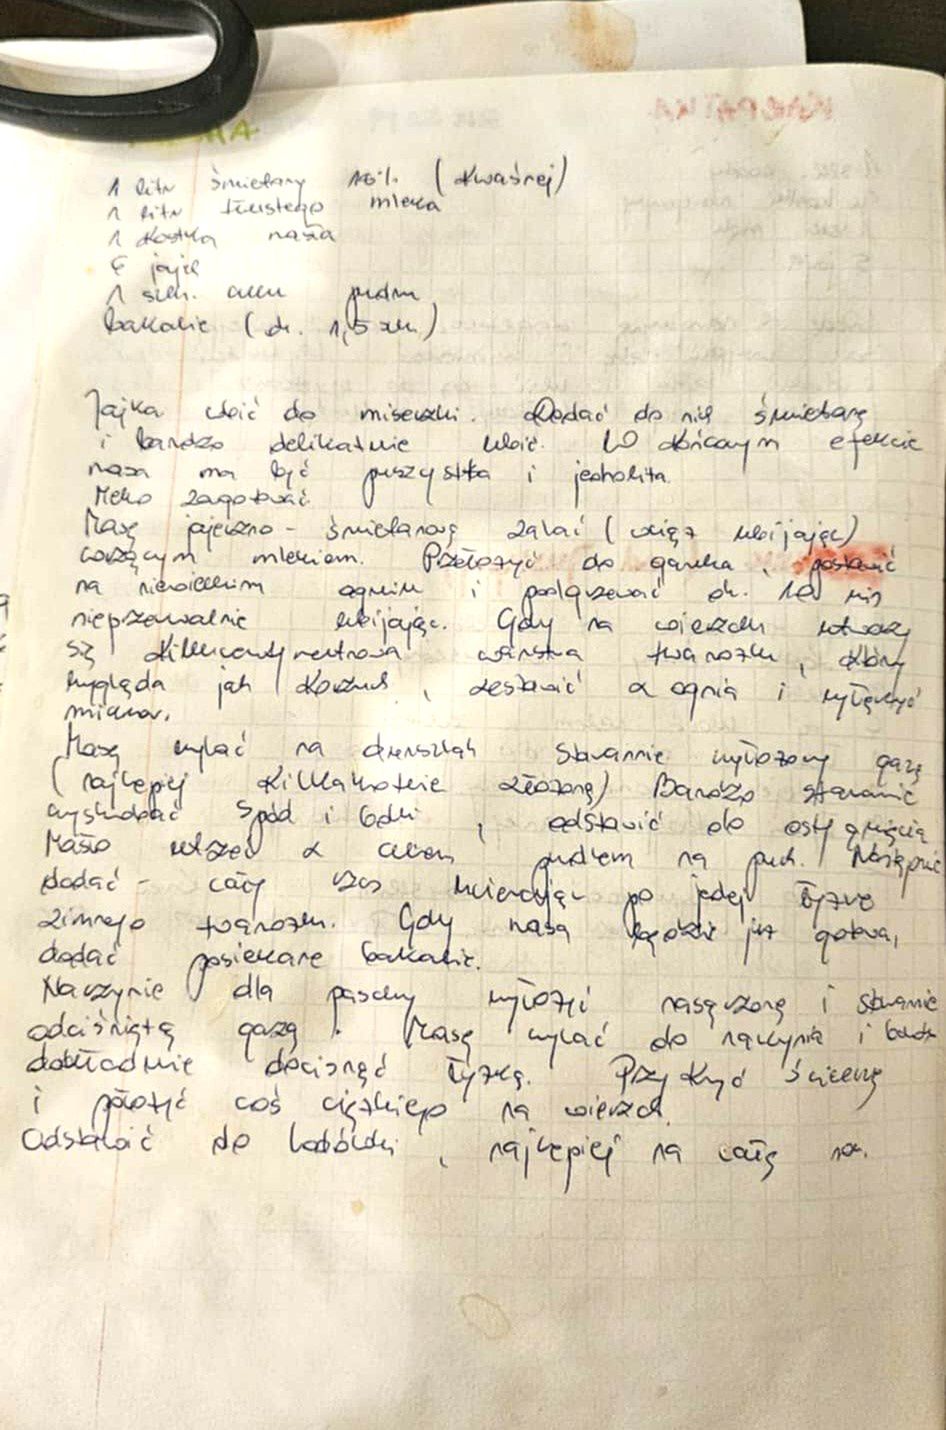 1 litr śmietany 18% (kwaśnej)
1 litr tłustego mleka
1 kostka masła
6 jajek
1 szkl. cukru pudru
bakalie (ok. 1,5 szkl.)
Jajka wbić do miseczki. Dodać do nich śmietanę
i bardzo delikatnie ubić. W końcowym efekcie
masa ma być puszystka i jednolita.
Mleko zagotować.
Masę jajeczno - śmietanową zalać (wciąż ubijając)
wrzącym mlekiem. Przełożyć do garnka, postawić
na niewielkim ogniu i podgrzewać ok. 10 min
nieprzerwalnie ubijając. Gdy na wierzchu utworzy
się kilkucentymetrowa warstwa twarożku, który
wygląda jak kożuch, zestawić z ognia i wyłączyć
mikser.
Masę wylać na durszlak starannie wyłożony gazą
(najlepiej kilkakrotnie złożoną) Bardzo starannie
wyskrobać spód i boki, odstawić do ostygnięcia
Masło utrzeć z cukrem pudrem na puch. Następnie
dodać - cały czas ucierając po jednej łyżce
zimnego twarożku. Gdy masa będzie już gotowa,
dodać posiekane bakalie.
Naczynie dla paschy wyłożyć nasączoną i starannie
odciśniętą gazą. Masę wylać do naczynia i bardzo
dokładnie docisnąć łyżką. Przykryć ścierką
i położyć coś ciężkiego na wierzch.
Odstawić do lodówki, najlepiej na całą noc.